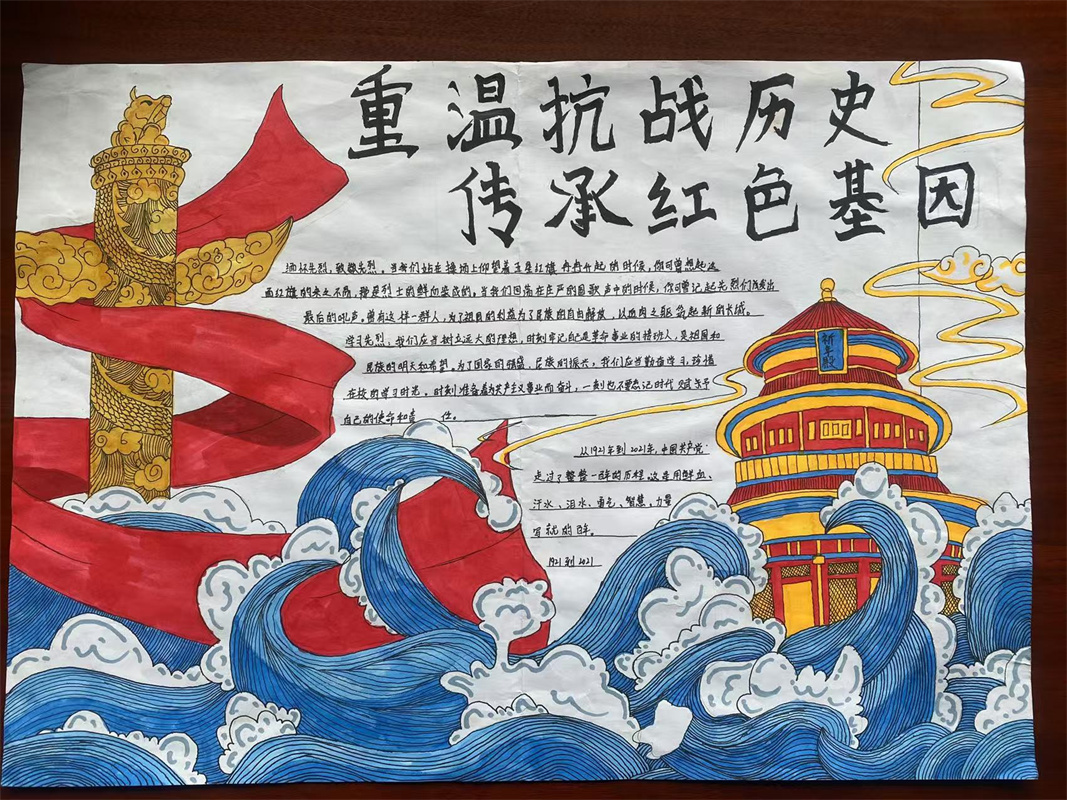 重温抗战历史
传承红色基因
缅怀先烈，致敬先烈。当我们站在操场上仰望着五星红旗冉冉升起的时候，你可曾想起这
面红旗的来之不易，她是烈士的鲜血染成的。当我们回荡在庄严的国歌声中的时候，你可曾记起先烈们发出
最后的吼声，曾有这样一群人，为了祖国的利益为了民族的自由解放，以血肉之躯筑起新的长城。
学习先烈，我们应当树立远大的理想，时刻牢记自己是革命事业的接班人，是祖国和
民族的明天和希望。为了国家的强盛，民族的振兴，我们应当勤奋学习，珍惜
在校的学习时光，时刻准备着为共产主义事业而奋斗，一刻也不要忘记时代赋予
自己的使命和责任。
祈年殿
从1921年到2021年，中国共产党
走过了整整一百年的历程，这是用鲜血、
汗水、泪水、勇气、智慧、力量
写就的百年。
1921到2021